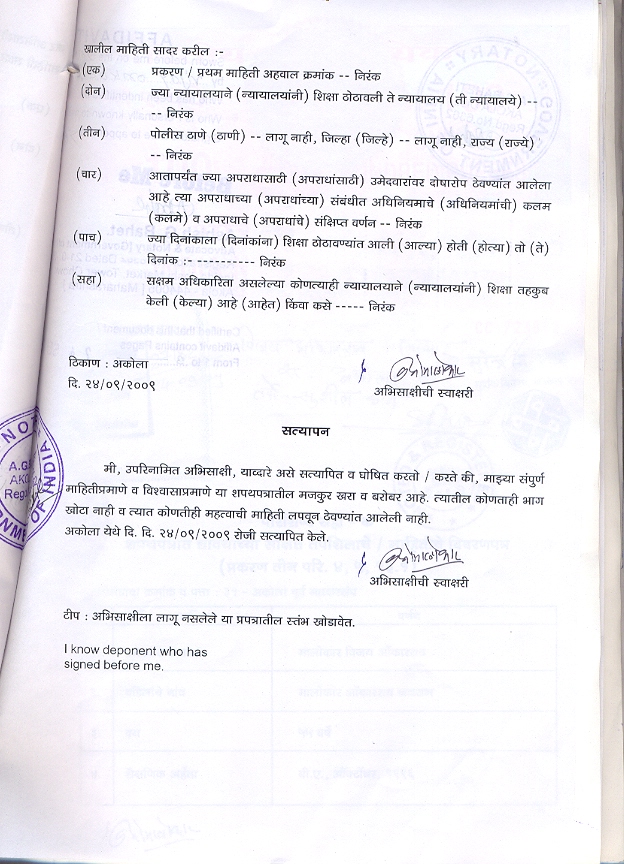 खालील माहिती सादर करील :-
(एक) प्रकरण / प्रथम माहिती अहवाल क्रमांक -- निरंक
(दोन) ज्या न्यायालयाने (न्यायालयांनी) शिक्षा ठोठावली ते न्यायालय (ती न्यायालये) --
-- निरंक
(तीन) पोलीस ठाणे (ठाणी) -- लागू नाही, जिल्हा (जिल्हे) -- लागू नाही, राज्य (राज्ये)
-- निरंक
(चार) आतापर्यंत ज्या अपराधासाठी (अपराधांसाठी) उमेदवारांवर दोषारोप ठेवण्यांत आलेला
आहे त्या अपराधाच्या (अपराधांच्या) संबंधीत अधिनियमाचे (अधिनियमांची) कलम
(कलमे) व अपराधाचे (अपराधांचे) संक्षिप्त वर्णन -- निरंक
(पाच) ज्या दिनांकाला (दिनांकांना) शिक्षा ठोठावण्यांत आली (आल्या) होती (होत्या) तो (ते)
दिनांक :- ---------- निरंक
(सहा) सक्षम अधिकारिता असलेल्या कोणत्याही न्यायालयाने (न्यायालयांनी) शिक्षा तहकुब
केली (केल्या) आहे (आहेत) किंवा कसे ----- निरंक
ठिकाण : अकोला
दि. २४/०९/२००९
अभिसाक्षीची स्वाक्षरी
सत्यापन
मी, उपरिनामित अभिसाक्षी, याव्दारे असे सत्यापित व घोषित करतो / करते की, माझ्या संपुर्ण
माहितीप्रमाणे व विश्वासाप्रमाणे या शपथपत्रातील मजकुर खरा व बरोबर आहे. त्यातील कोणताही भाग
खोटा नाही व त्यात कोणतीही महत्वाची माहिती लपवून ठेवण्यांत आलेली नाही.
अकोला येथे दि. दि. २४/०९/२००९ रोजी सत्यापित केले.
अभिसाक्षीची स्वाक्षरी
टीप : अभिसाक्षीला लागू नसलेले या प्रपत्रातील स्तंभ खोडावेत.
I know deponent who has
signed before me.